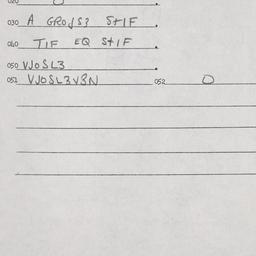 030 A GROJS? StIF.
040 TIF EQ StIF.
050 VJOSL3.
051 VJOSL3V3N 052 O